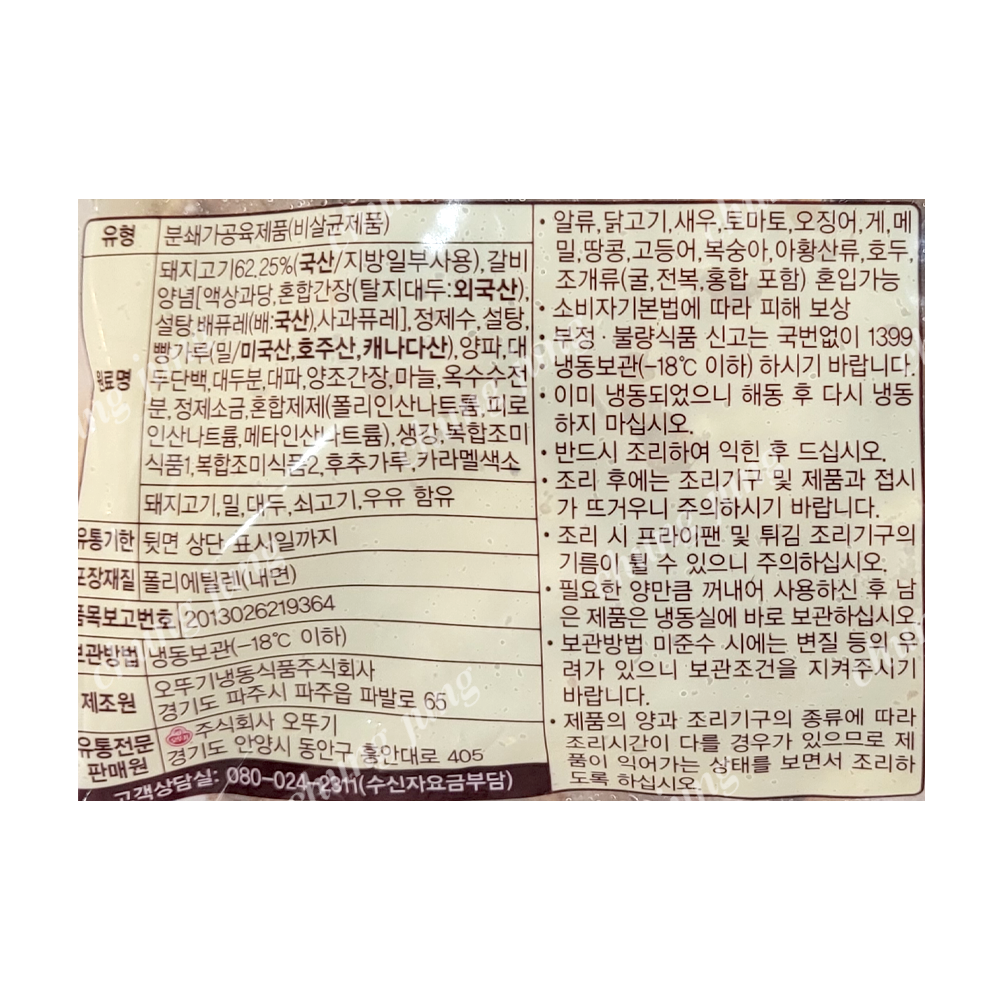 유형 분쇄가공육제품(비살균제품)
돼지고기62.25%(국산/지방일부사용),갈비
양념[액상과당,혼합간장(탈지대두:외국산),
설탕,배퓨레(배:국산),사과퓨레],정제수,설탕,
빵가루(밀/미국산,호주산,캐나다산),양파,대
원료명 두단백,대두분,대파,양조간장,마늘,옥수수전
분,정제소금,혼합제제(폴리인산나트륨,피로
인산나트륨,메타인산나트륨),생강,복합조미
식품1,복합조미식품2,후추가루,카라멜색소
돼지고기,밀,대두,쇠고기,우유 함유
유통기한 뒷면 상단 표시일까지
포장재질 폴리에틸렌(내면)
품목보고번호 2013026219364
보관방법 냉동보관(-18℃ 이하)
제조원 오뚜기냉동식품주식회사
경기도 파주시 파주읍 파발로 65
유통전문 주식회사 오뚜기
판매원 경기도 안양시 동안구 흥안대로 405
고객상담실: 080-024-2311(수신자요금부담)
• 알류,닭고기,새우,토마토,오징어,게,메
밀,땅콩,고등어,복숭아,아황산류,호두,
조개류(굴,전복,홍합 포함) 혼입가능
• 소비자기본법에 따라 피해 보상
• 부정·불량식품 신고는 국번없이 1399
• 냉동보관(-18℃ 이하) 하시기 바랍니다.
• 이미 냉동되었으니 해동 후 다시 냉동
하지 마십시오.
• 반드시 조리하여 익힌 후 드십시오.
• 조리 후에는 조리기구 및 제품과 접시
가 뜨거우니 주의하시기 바랍니다.
• 조리 시 프라이팬 및 튀김 조리기구의
기름이 튈 수 있으니 주의하십시오.
• 필요한 양만큼 꺼내어 사용하신 후 남
은 제품은 냉동실에 바로 보관하십시오.
• 보관방법 미준수 시에는 변질 등의 우
려가 있으니 보관조건을 지켜주시기
바랍니다.
• 제품의 양과 조리기구의 종류에 따라
조리시간이 다를 경우가 있으므로 제
품이 익어가는 상태를 보면서 조리하
도록 하십시오.